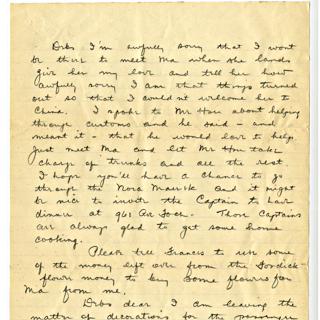 Dibs I'm awfully sorry that I wont
be there to meet Ma when she lands
give her my love and tell her how
awfully sorry I am that things turned
out so that I couldn't welcome her to
China. I spoke to Mr Hou about helping
through customs and he said - and
meant it - that he would love to help
Just meet Ma and let Mr Hou take
charge of trunks and all the rest.
I hope you'll have a chance to go
through the Nora Maersk and it might
be nice to invite the Captain to have
dinner at 961 Ave Foch. Those Captains
are always glad to get some home
cooking.
Please tell Frances to use some
of the money left over from the
flower money to buy some flowers for
Ma from me.
Dibs dear I am leaving the
matter of decorations for the passenger